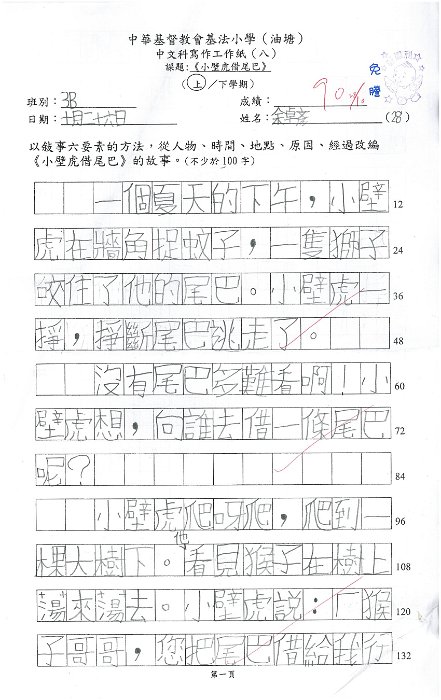 中華基督教會基法小學（油塘）
中文科寫作工作紙（八）
課題:《小壁虎借尾巴》
（上/下學期）
免謄
班別: 3B 成績: 90
日期: 十月二十六日 姓名: 余卓彥 (28)
以敍事六要素的方法，從人物、時間、地點、原因、經過改編
《小壁虎借尾巴》的故事。(不少於100字)
一個夏天的下午，小壁 12
虎在牆角捉蚊子，一隻獅子 24
咬住了他的尾巴。小壁虎一 36
掙，掙斷尾巴逃走了。 48
沒有尾巴多難看啊！小 60
壁虎想，向誰去借一條尾巴 72
呢？ 84
小壁虎爬呀爬，爬到一 96
他
棵大樹下。看見猴子在樹上 108
蕩來蕩去。小壁虎說：「猴 120
子哥哥，您把尾巴借給我行 132
第一頁